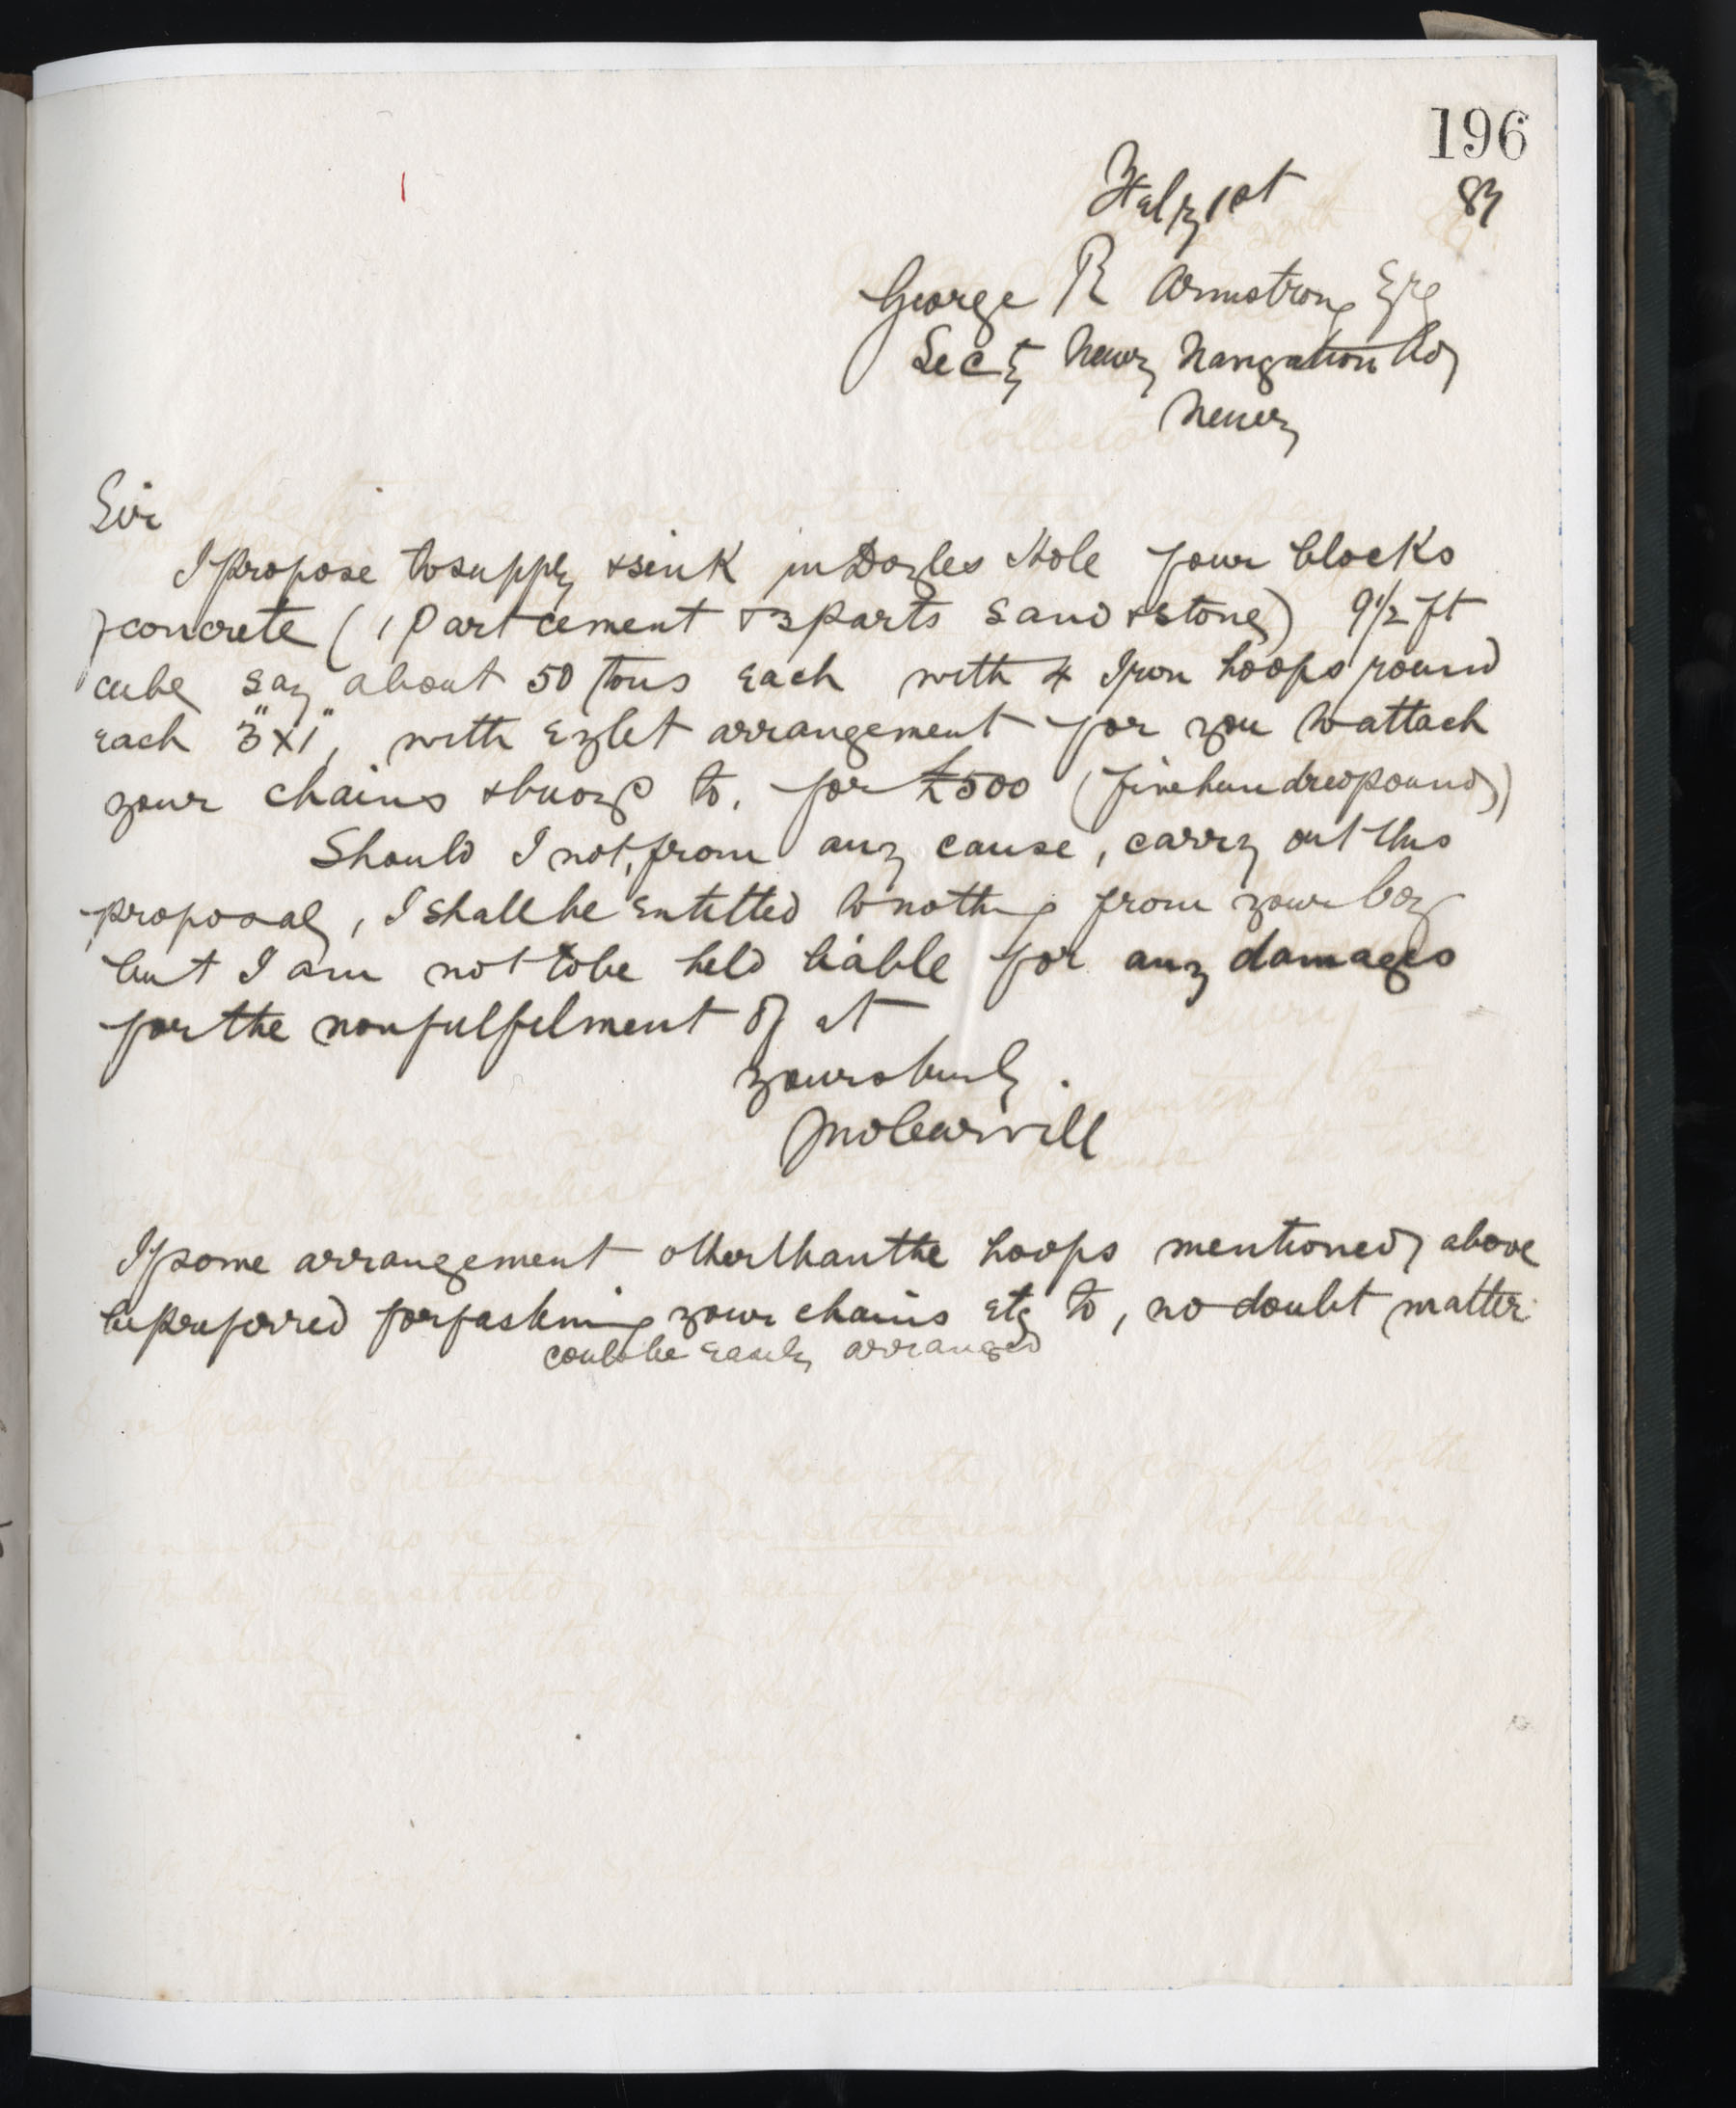 196
July 1st 87
George R Armstrong Esq
Secty Newry Navigation Coy
Newry
Sir
I propose to supply & sink in Doyles Hole four blocks
of concrete (1 Part cement & 3 parts sand & stone) 9 1/2 ft
cube say about 50 tons each with 4 Iron hoops round
each 3" x 1", with Eylet arrangement for you to attach
your chains & buoys to. for £500 (five hundred pounds)
Should I not, from any cause, carry out this
proposal, I shall be entitled to nothing from your Coy
but I am not to be held liable for any damages
for the nonfulfilment of it
Yours truly.
Jno Carvill
If some arrangement other than the hoops mentioned above
be preferred for fastening your chains etc to, no doubt matter
could be easily arranged